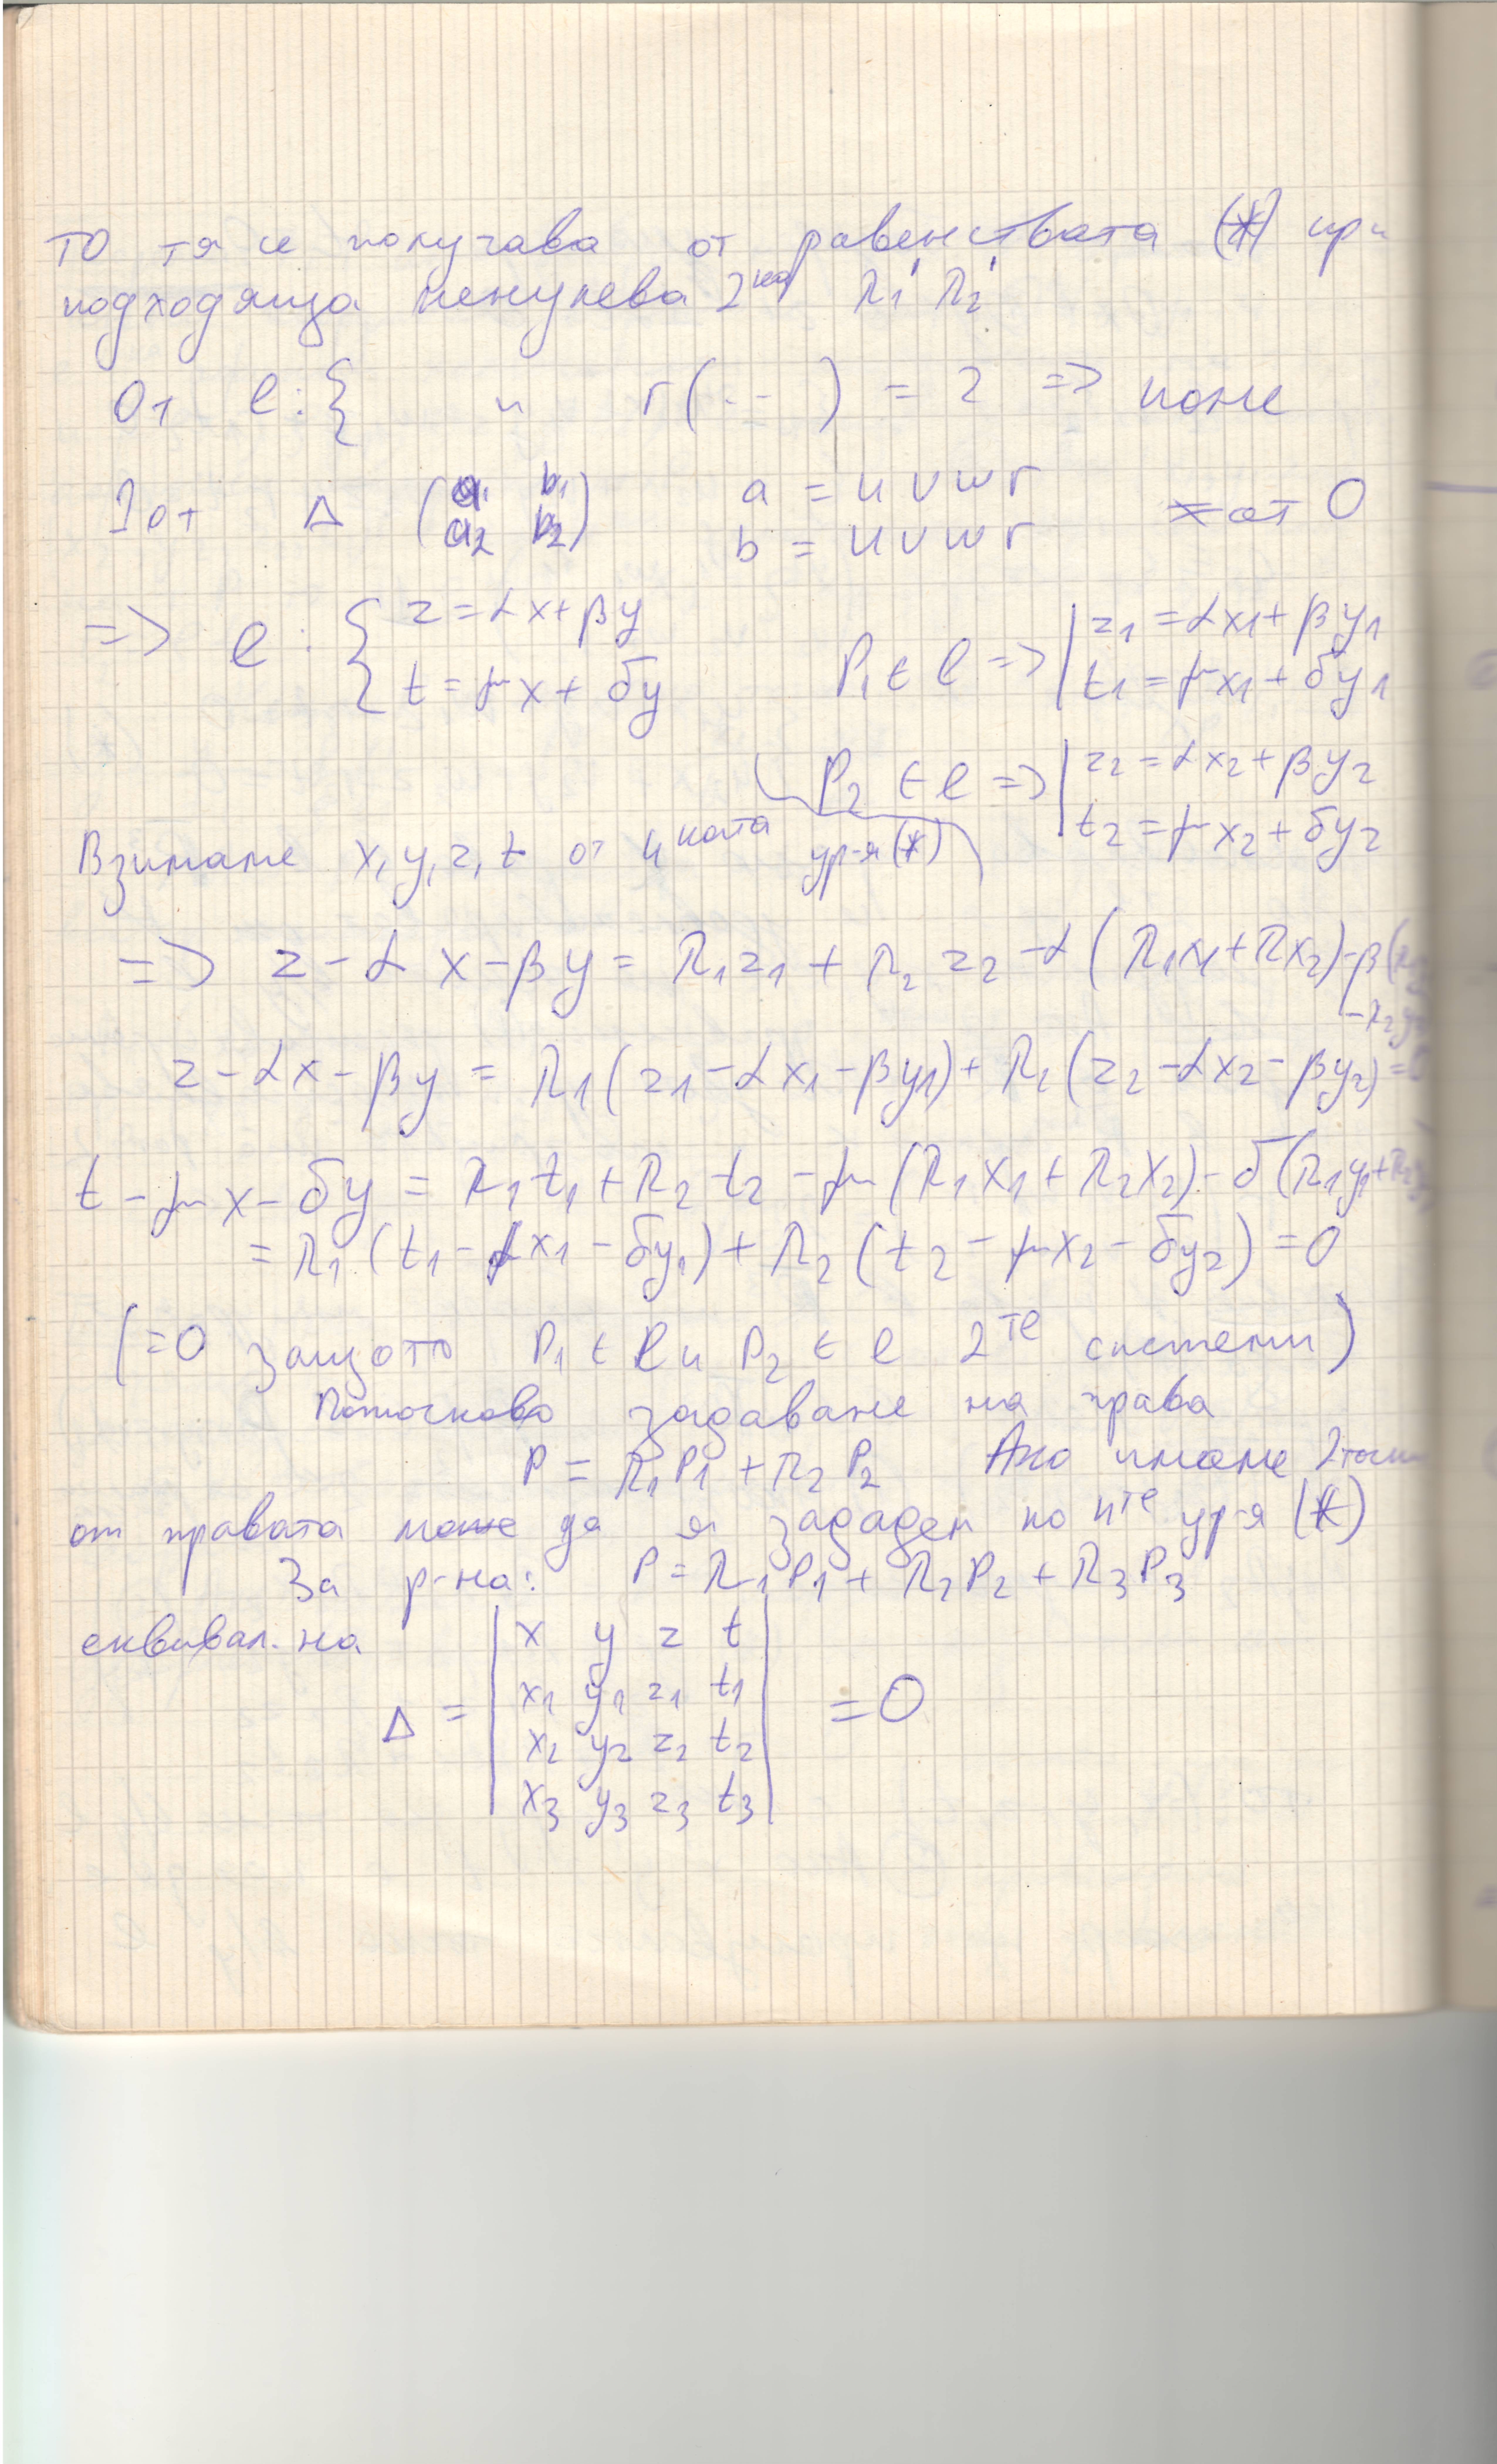 то тя се получава от равенствата (*) при
подходяща ненулева 2ка λ1' λ2'
От l: { и r(-- ) = 2 => поне
1 от Δ (a1 b1 a2 b2) a = u v w r b = u v w r ≠ от 0
=> l: { z = αx + βy t = μx + δy P1 ∈ l => | z1 = αx1 + βy1 t1 = μx1 + δy1
P2 ∈ l => | z2 = αx2 + βy2 t2 = μx2 + δy2
Взимаме x, y, z, t от 4ката ур-я (*)
=> z - αx - βy = λ1z1 + λ2z2 - α(λ1x1 + λx2) - β(
z - αx - βy = λ1(z1 - αx1 - βy1) + λ2(z2 - αx2 - βy2) =
t - μx - δy = λ1t1 + λ2t2 - μ(λ1x1 + λ2x2) - δ(λ1y1 +
= λ1(t1 - μx1 - δy1) + λ2(t2 - μx2 - δy2) = 0
(=0 защото P1 ∈ l и P2 ∈ l 2те системи)
Поточково задаване на права
P = λ1P1 + λ2P2 Ако имаме
от правата може да я зададем по 4те ур-я (*)
За р-на: P = λ1P1 + λ2P2 + λ3P3
еквивал. на
Δ = | x y z t
x1 y1 z1 t1
x2 y2 z2 t2
x3 y3 z3 t3 | = 0